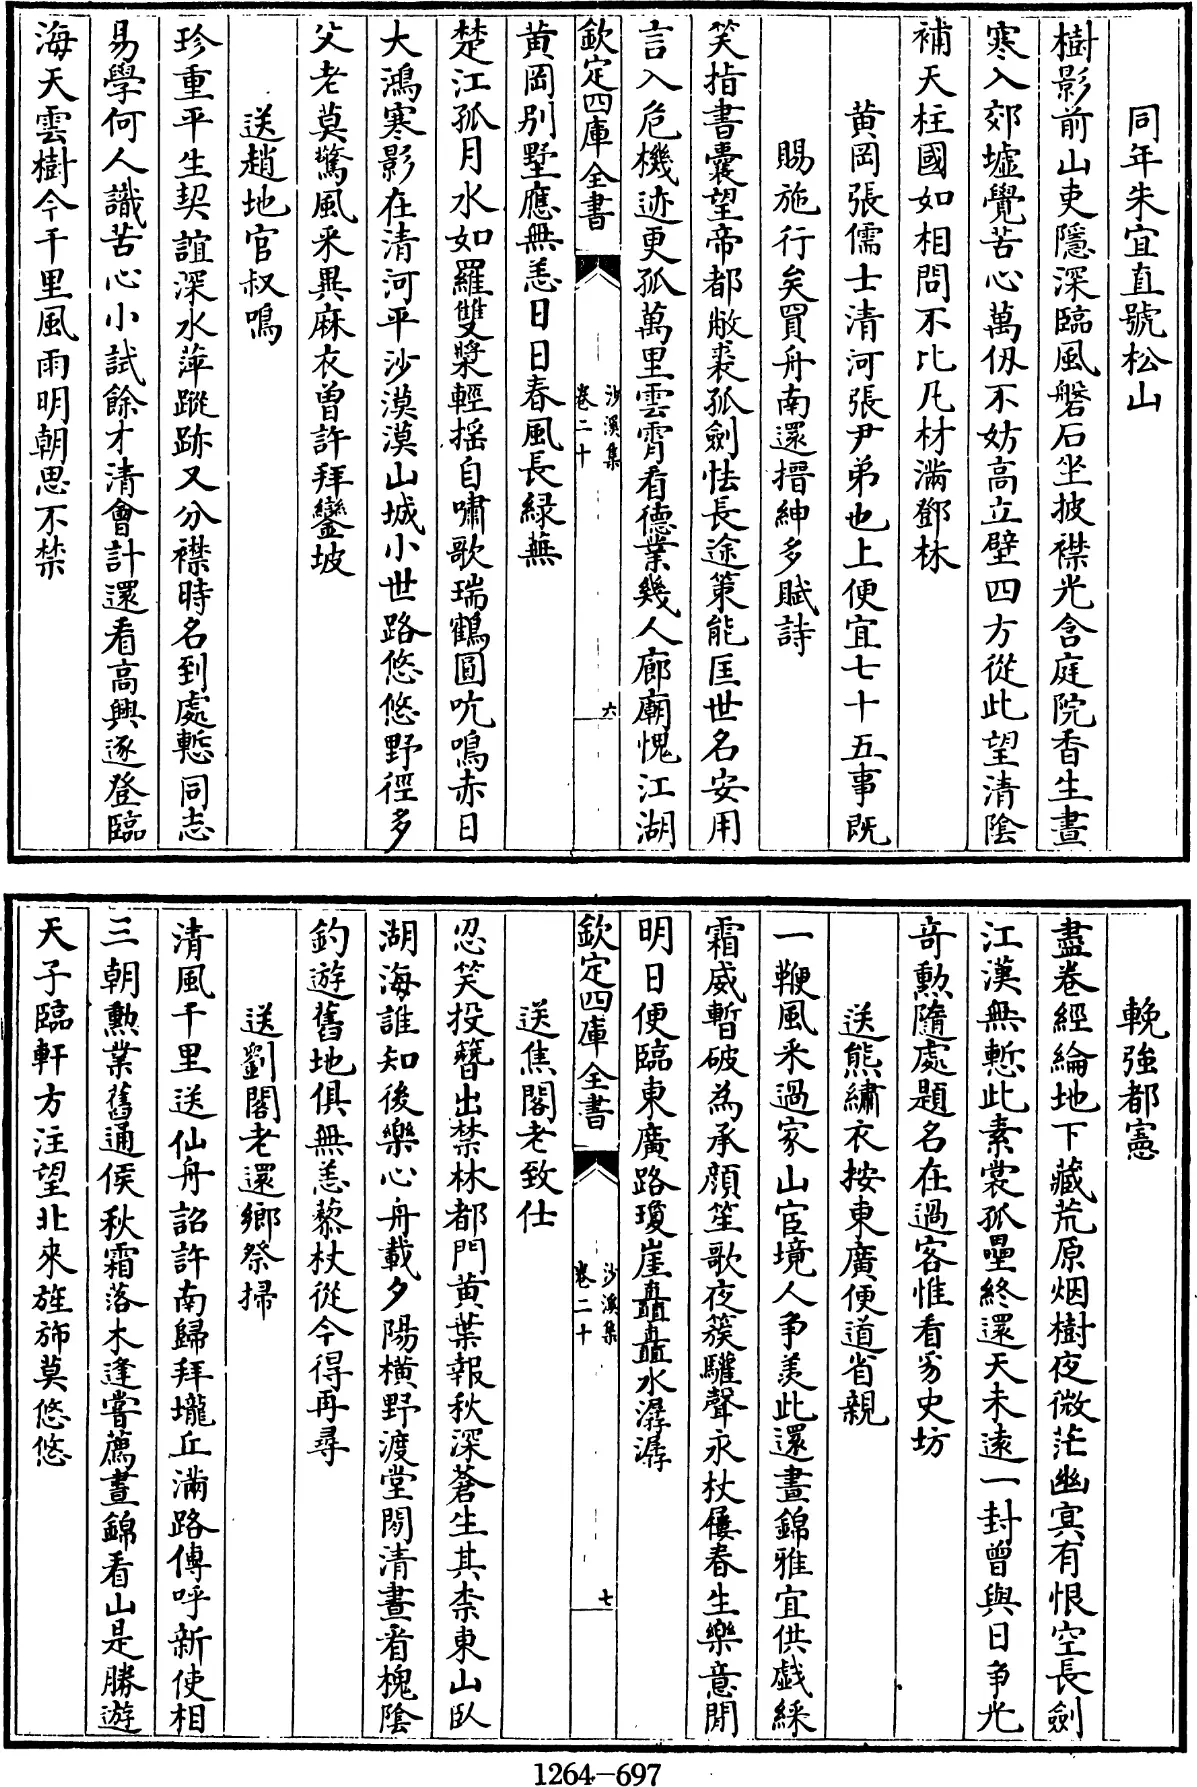 同年朱宜直號松山
樹影前山吏隱深臨風磐石坐披襟光含庭院香生晝
寒入郊墟覺苦心萬仞不妨高立壁四方從此望清陰
補天柱國如相問不比凡材滿鄧林
黄岡張儒士清河張尹弟也上便宜七十五事既
賜施行矣買舟南還搢紳多賦詩
笑指書囊望帝都敝裘孤劍怯長途策能匡世名安用
言入危機迹更孤萬里雲霄看德業幾人廊廟愧江湖
欽定四庫全書
沙溪集
卷二十
六
黄岡别墅應無恙日日春風長緑蕪
楚江孤月水如羅雙槳輕揺自嘯歌瑞鶴圓吭鳴赤日
大鴻寒影在清河平沙漠漠山城小世路悠悠野徑多
父老莫驚風采異麻衣曾許拜鑾坡
送趙地官叔鳴
珍重平生契誼深水萍蹤跡又分襟時名到處慙同志
易學何人識苦心小試餘才清會計還看高興逐登臨
海天雲樹今千里風雨明朝思不禁
輓強都憲
盡卷經綸地下藏荒原烟樹夜微茫幽冥有恨空長劍
江漢無慙此素裳孤壘終還天未遠一封曾與日争光
奇勲隨處題名在過客惟看豸史坊
送熊繡衣按東廣便道省親
一鞭風采過家山宦境人争羨此還晝錦雅宜供戲綵
霜威暫破為承顔笙歌夜簇驩聲永杖屨春生樂意閒
明日便臨東廣路瓊崖矗矗水潺潺
欽定四庫全書
沙溪集
卷二十
七
送焦閣老致仕
忍笑投簪出禁林都門黄葉報秋深蒼生其柰東山臥
湖海誰知後樂心舟載夕陽横野渡堂閒清晝看槐陰
釣遊舊地俱無恙藜杖從今得再尋
送劉閣老還鄉祭掃
清風千里送仙舟詔許南歸拜壠丘滿路傳呼新使相
三朝勲業舊通侯秋霜落木逢嘗薦晝錦看山是勝遊
天子臨軒方注望北來旌斾莫悠悠
1264—697